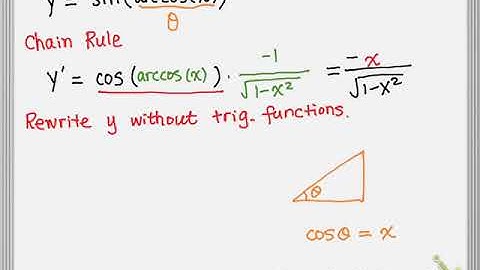 y = sin(arccos(x))
θ
Chain Rule
y' = cos(arccos(x)) · -1/√1-x² = -x/√1-x²
Rewrite y without trig. functions.
θ
cosθ = x